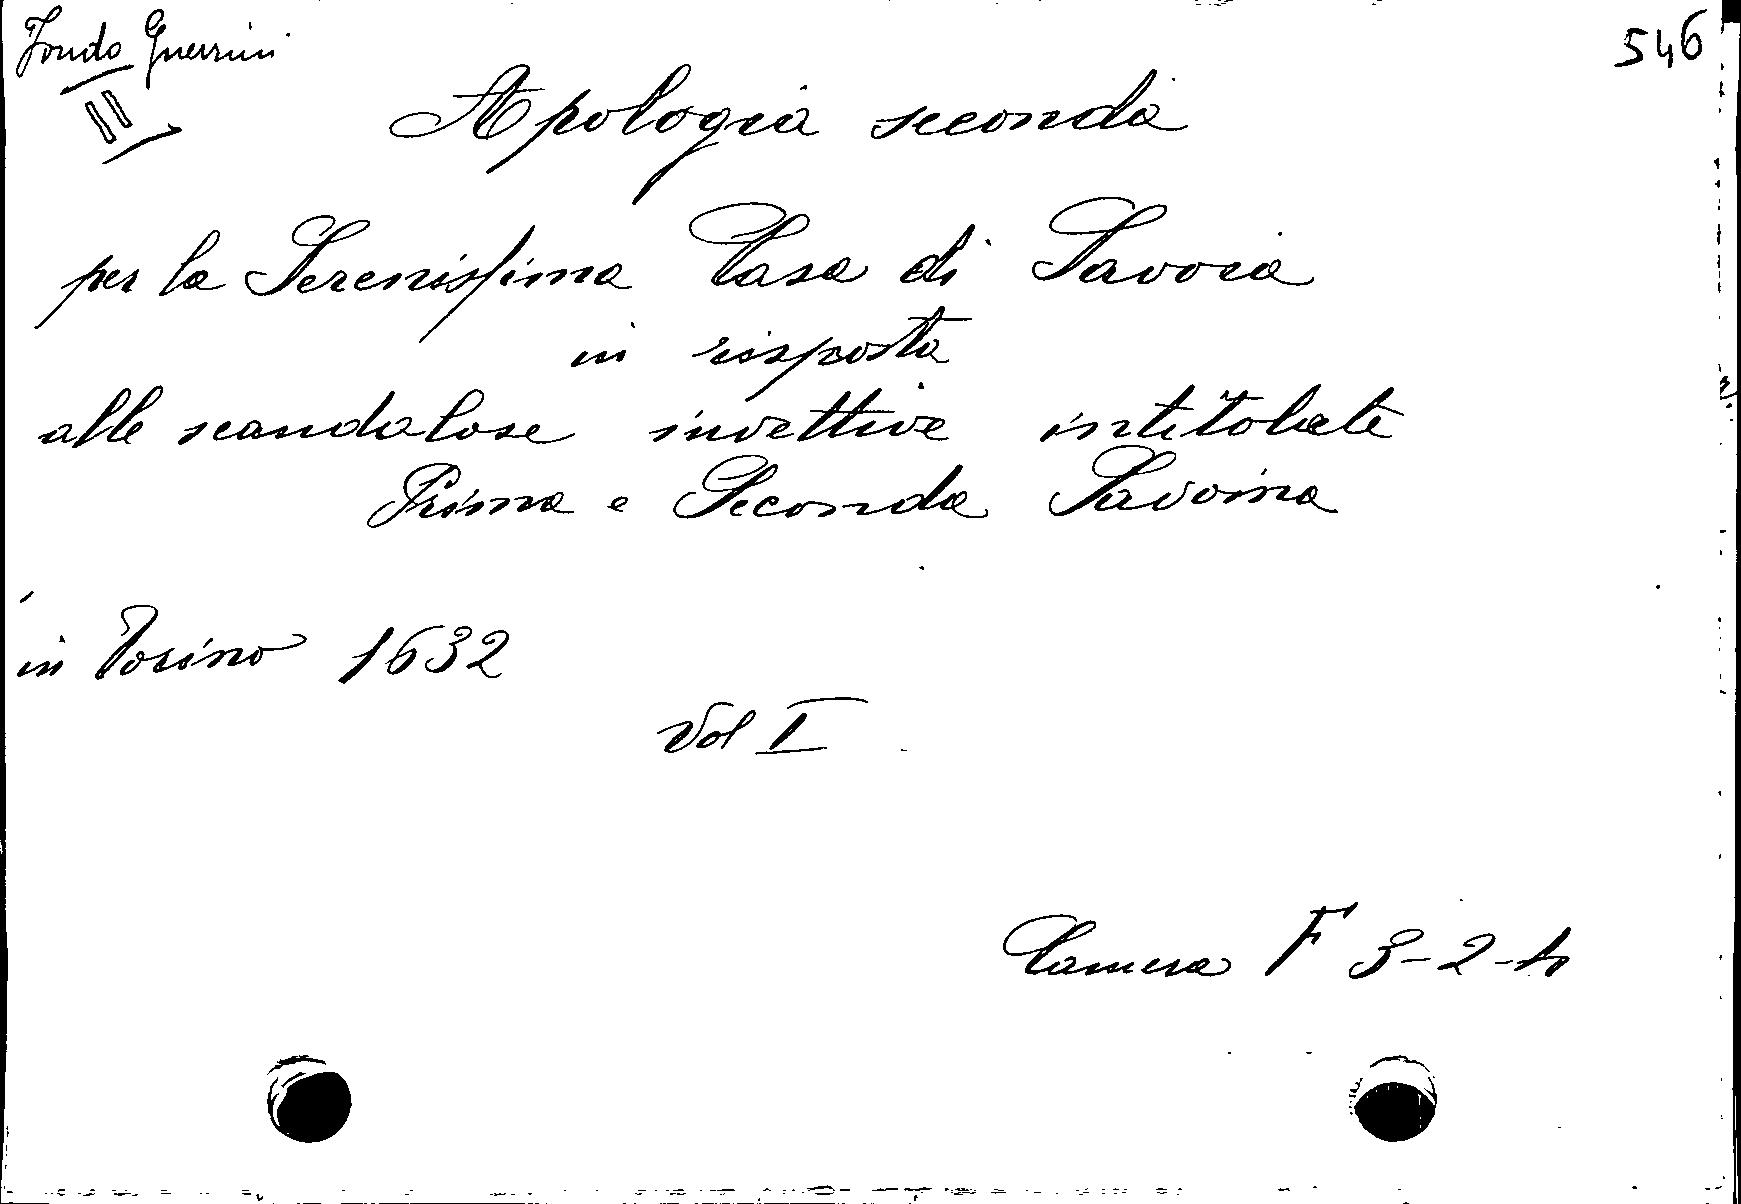 Fondo Guerrini
546
II
Apologia seconda
per la Serenissima Casa di Savoia
in risposta
alle scandalose invettive intitolate
Prima e Seconda Savoina
in Torino 1632
Vol I
Camera F 3-2-4